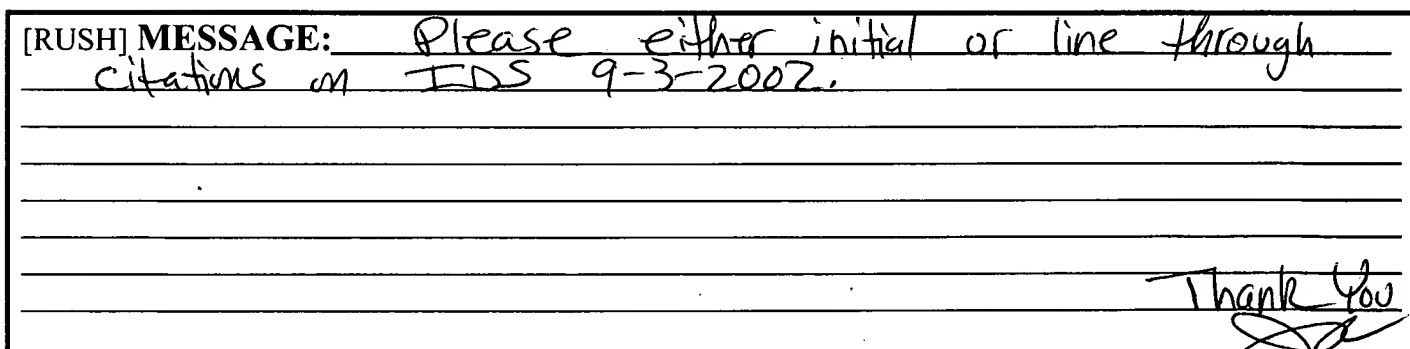 [RUSH] MESSAGE: Please either initial or line through
citations on IDS 9-3-2002.
Thank You